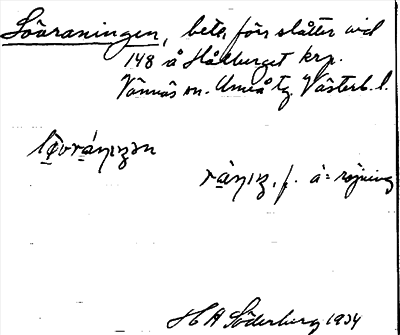 Lövraningen, bete, förr slåtter vid
148 å Hålberget krp.
Vännäs sn. Umeå tg. Västerb. l.
råning, f. å = röjning
H A Söderberg 1934